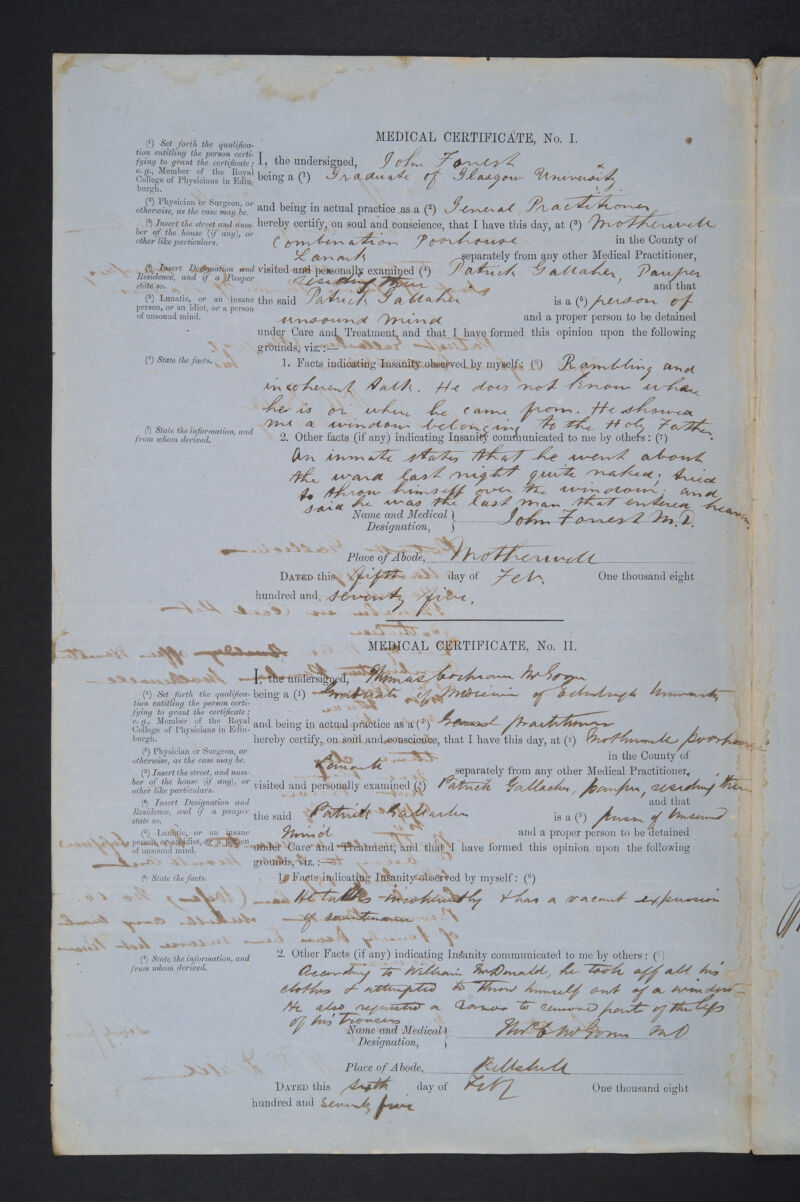 MEDICAL CERTIFICATE, No. I.
(1) Set forth the qualifica-
tion entitling the person certi-
fying to grant the certificate;
e. g., Member of the Royal
College of Physicians in Edin-
burgh.
I, the undersigned, John Forrest
being a (1) Graduate of Glasgow University
(2) Physician or Surgeon, or
otherwise, as the case may be.
and being in actual practice as a (2) General Practitioner
(3) Insert the street and num-
ber of the house (if any), or
other like particulars.
hereby certify, on soul and conscience, that I have this day, at (3) Motherwell
Combination Poorhouse in the County of
Lanark separately from any other Medical Practitioner,
(4) Insert Designation and
Residence, and if a Pauper
state so.
visited and personally examined (4) Patrick Gallaher, Pauper
residing there and that
(5) Lunatic, or an insane
person, or an idiot, or a person
of unsound mind.
the said Patrick Gallaher is a (5) person of
unsound mind and a proper person to be detained
under Care and Treatment, and that I have formed this opinion upon the following
grounds, viz.:—
(6) State the facts.
1. Facts indicating Insanity observed by myself: (6) Rambling and
incoherent talk. He does not know where
he is or where he came from. He showed
me a window belonging to the Holy Father
(7) State the information, and
from whom derived.
2. Other facts (if any) indicating Insanity communicated to me by others: (7)
An inmate states that he went about
the ward last night quite naked; tried
to throw himself over the window; and
said he was the last man that entered heaven.
Name and Medical
Designation, John Forrest M.D.
Place of Abode, Motherwell
DATED this fifth day of Feb. One thousand eight
hundred and seventy five.
MEDICAL CERTIFICATE, No. II.
I, the undersigned, Thomas Cochrane McGown
(1) Set forth the qualifica-
tion entitling the person certi-
fying to grant the certificate;
e. g., Member of the Royal
College of Physicians in Edin-
burgh.
being a (1) Graduate of Medicine of Edinburgh University
and being in actual practice as a (2) General practitioner
(2) Physician or Surgeon, or
otherwise, as the case may be.
hereby certify, on soul and conscience, that I have this day, at (3) Motherwell poorhouse
in the County of
(3) Insert the street, and num-
ber of the house (if any), or
other like particulars.
Lanark separately from any other Medical Practitioner,
visited and personally examined (4) Patrick Gallacher, pauper, residing there
(4) Insert Designation and
Residence, and if a pauper
state so.
and that
the said Patrick Gallacher is a (5) person of Unsound
(5) Lunatic, or an insane
person, or an idiot, or a person
of unsound mind.
Mind and a proper person to be detained
under Care and Treatment, and that I have formed this opinion upon the following
grounds, viz.:—
(6) State the facts.
1. Facts indicating Insanity observed by myself: (6)
He talks incoherently & has a vacant expression
of countenance
(7) State the information, and
from whom derived.
2. Other Facts (if any) indicating Insanity communicated to me by others: (7)
According to William McDonald, he took off all his
clothes & attempted to throw himself out of a window—
He also requested a razor to remove part of the legs
of his trousers
Name and Medical
Designation, Thos C McGown MD
Place of Abode, Bellshill
DATED this sixth day of Feby One thousand eight
hundred and seventy five